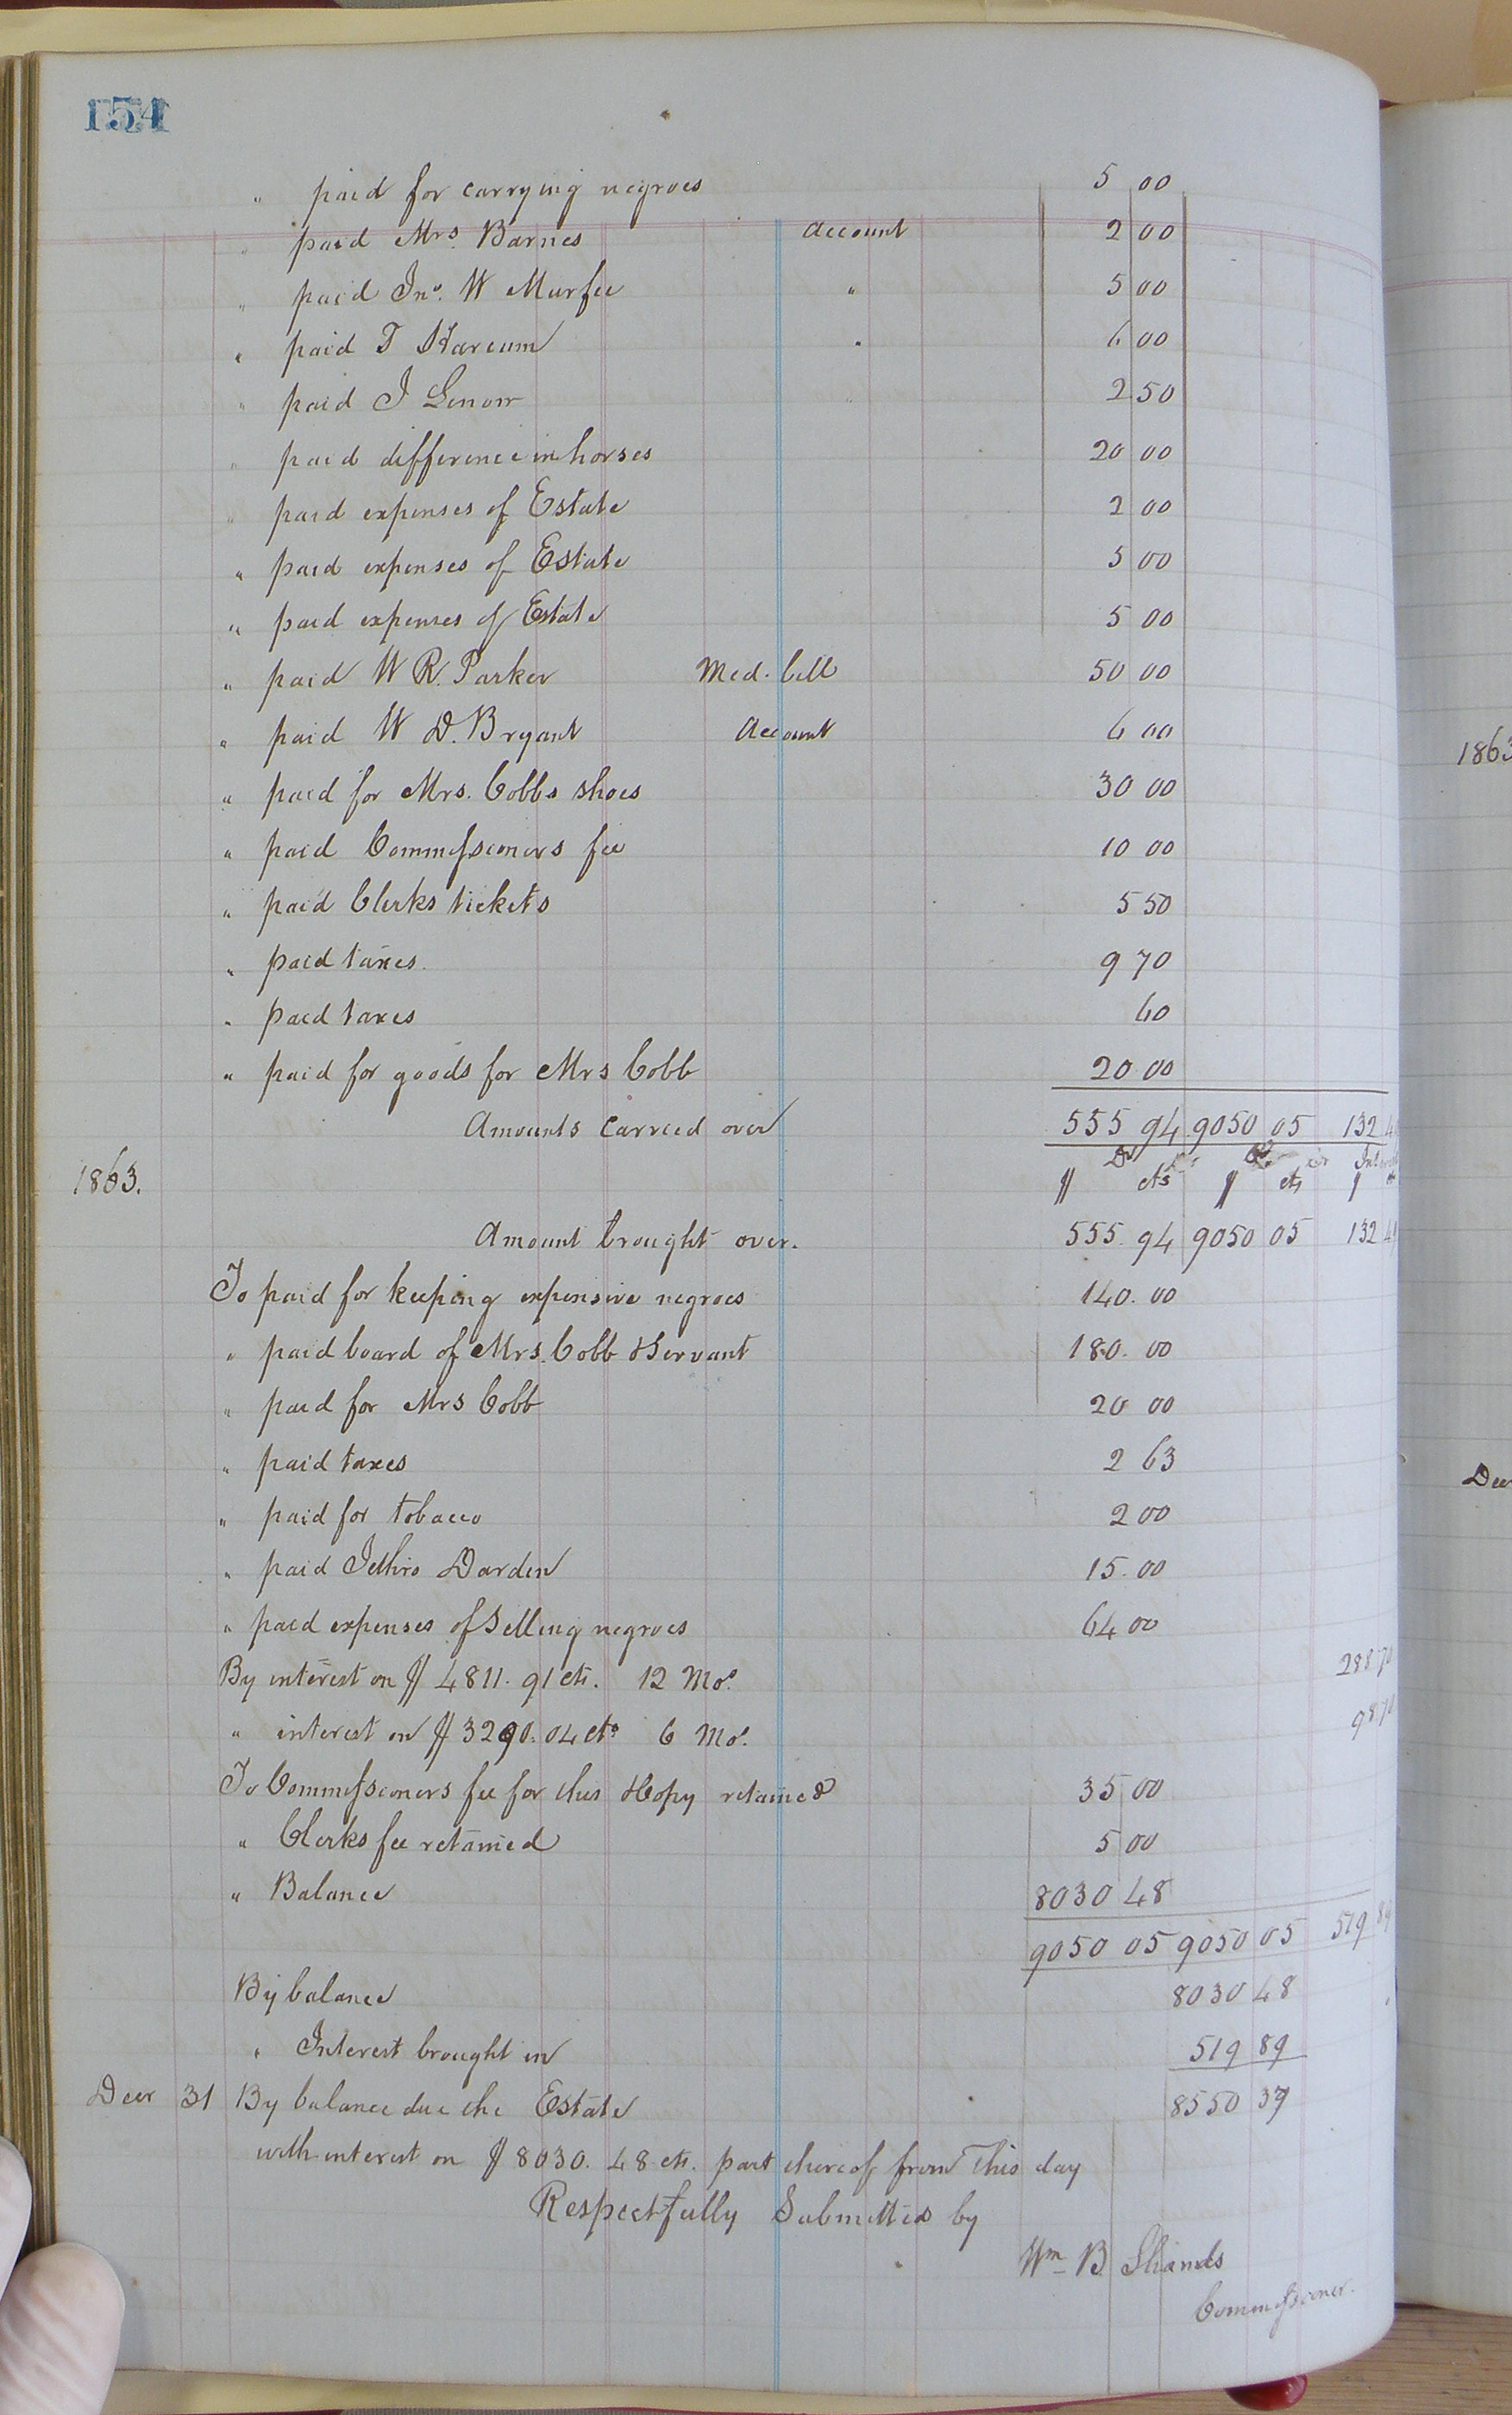 154
" paid for carrying negroes 5 00
" paid Mrs. Barnes account 2 00
" paid Jno. W Murfee " 5 00
" paid T Harcum " 6 00
" paid J Lenow " 2 50
" paid difference in horses 20 00
" paid expenses of Estate 2 00
" paid expenses of Estate 5 00
" paid expenses of Estate 5 00
" paid W R. Parker Med. bill 50 00
" paid W D. Bryant Account 6 00
" paid for Mrs. Cobbs shoes 30 00
" paid Commissioners fee 10 00
" paid Clerks tickets 5 50
" paid taxes. 9 70
" paid taxes 60
" paid for goods for Mrs Cobb 20.00
Amounts carried over 555 94 9050 05 132
1863. Dr Cr
$ cts $ cts $
Amount brought over. 555. 94 9050 05 132
To paid for keeping expensive negroes 140. 00
" paid board of Mrs. Cobb & Servant 180. 00
" paid for Mrs Cobb 20 00
" paid taxes 2 63
" paid for tobacco 2 00
" paid Jethro Darden 15. 00
" paid expenses of Selling negroes 64 00
By interest on $ 4811. 91 cts. 12 Mos. 288 70
" interest on $ 3290. 04 cts 6 Mos. 98 70
To Commissioners fee for this & Copy retained 35 00
" Clerks fee retained 5 00
" Balance 8030 48
9050 05 9050 05 519 89
By balance 8030 48
" Interest brought in 519 89
Decr 31 By balance due the Estate 8550 37
with interest on $ 8030. 48 cts. part thereof from This day
Respectfully Submitted by
Wm B Shands
Commissioner.
1863
Dec